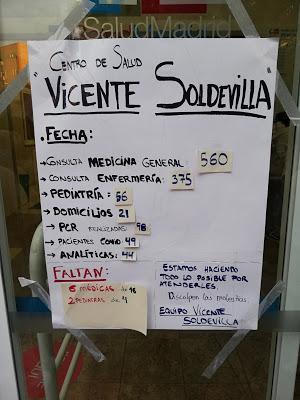 SaludMadrid
CENTRO DE SALUD
"VICENTE SOLDEVILLA"
. FECHA:
→ CONSULTA MEDICINA GENERAL: 560
→ CONSULTA ENFERMERÍA: 375
→ PEDIATRÍA: 56
→ DOMICILIOS 21
→ PCR REALIZADAS 98
→ PACIENTES COVID: 49
→ ANALÍTICAS: 44
FALTAN:
6 MÉDICAS de 18
2 PEDIATRAS de 4
ESTAMOS HACIENDO
TODO LO POSIBLE POR
ATENDERLES.
Disculpen las molestias
EQUIPO VICENTE
SOLDEVILLA